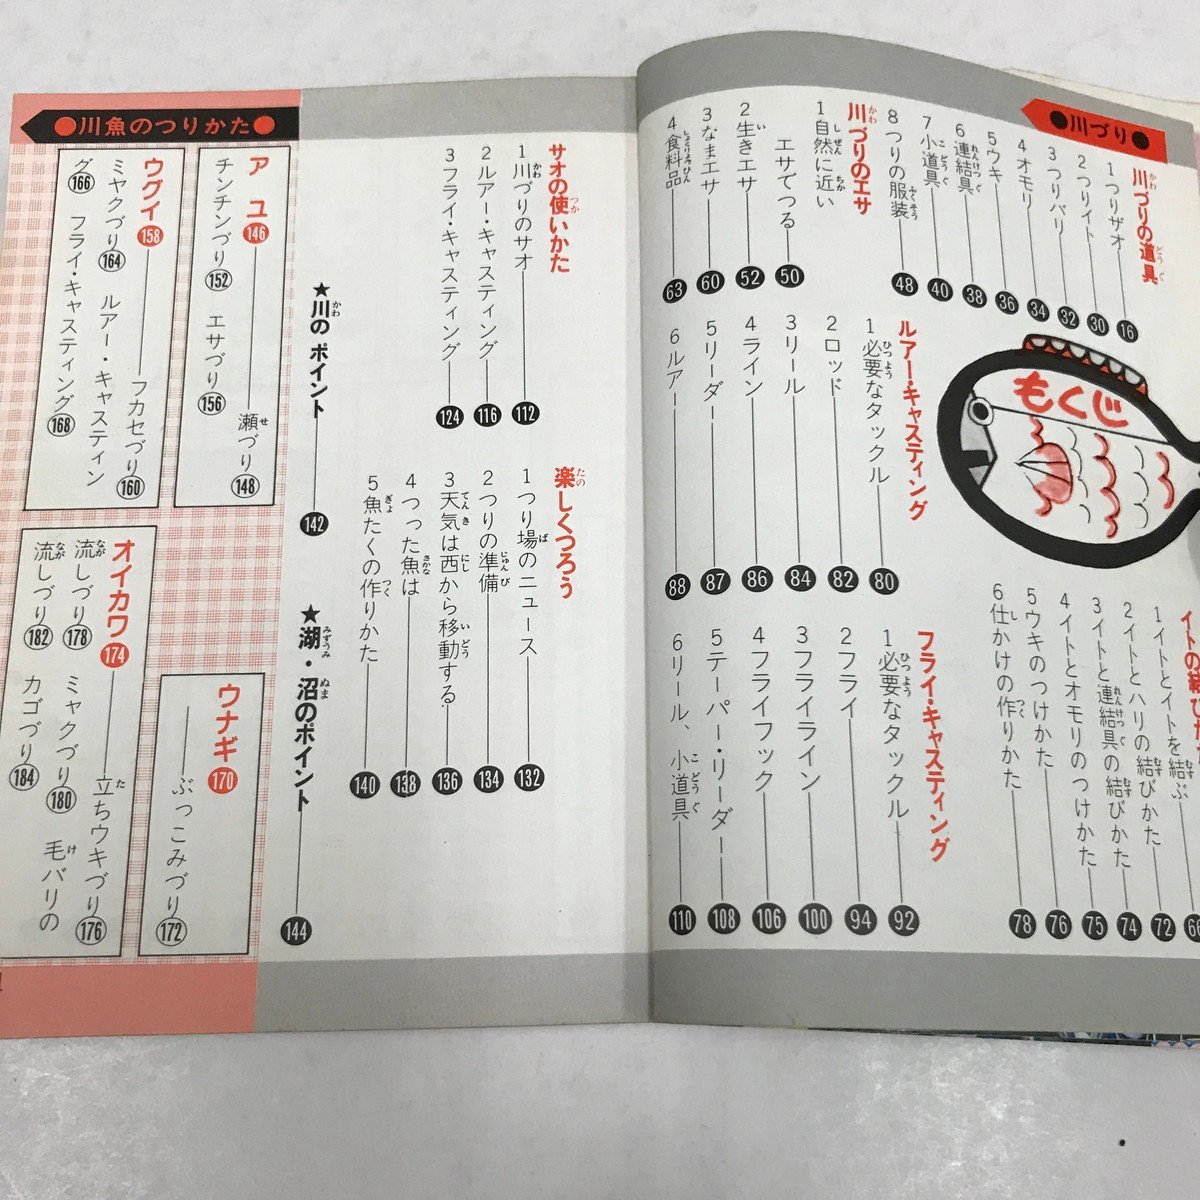 ●川づり●
もくじ
川づりの道具
1つりザオ 16
2つりイト 30
3つりバリ 32
4オモリ 34
5ウキ 36
6連結具 38
7小道具 40
8つりの服装 48
川づりのエサ
1自然に近い
エサでつる 50
2生きエサ 52
3なまエサ 60
4食料品 63
ルアー・キャスティング
1必要なタックル 80
2ロッド 82
3リール 84
4ライン 86
5リーダー 87
6ルアー 88
1イトとイトを結ぶ
2イトとハリの結びかた 72
3イトと連結具の結びかた 74
4イトとオモリのつけかた 75
5ウキのつけかた 76
6仕かけの作りかた 78
フライ・キャスティング
1必要なタックル 92
2フライ 94
3フライライン 100
4フライフック 106
5テーパー・リーダー 108
6リール、小道具 110
サオの使いかた
1川づりのサオ 112
2ルアー・キャスティング 116
3フライ・キャスティング 124
楽しくつろう
1つり場のニュース 132
2つりの準備 134
3天気は西から移動する 136
4つった魚は 138
5魚たくの作りかた 140
★川のポイント 142
★湖・沼のポイント 144
●川魚のつりかた●
アユ 146
瀬づり 148
チンチンづり 152 エサづり 156
ウグイ 158
フカセづり 160
ミャクづり 164 ルアー・キャスティン
グ 166 フライ・キャスティング 168
ウナギ 170
ぶっこみづり 172
オイカワ 174
立ちウキづり 176
流しづり 178 ミャクづり 180 毛バリの
流しづり 182 カゴづり 184